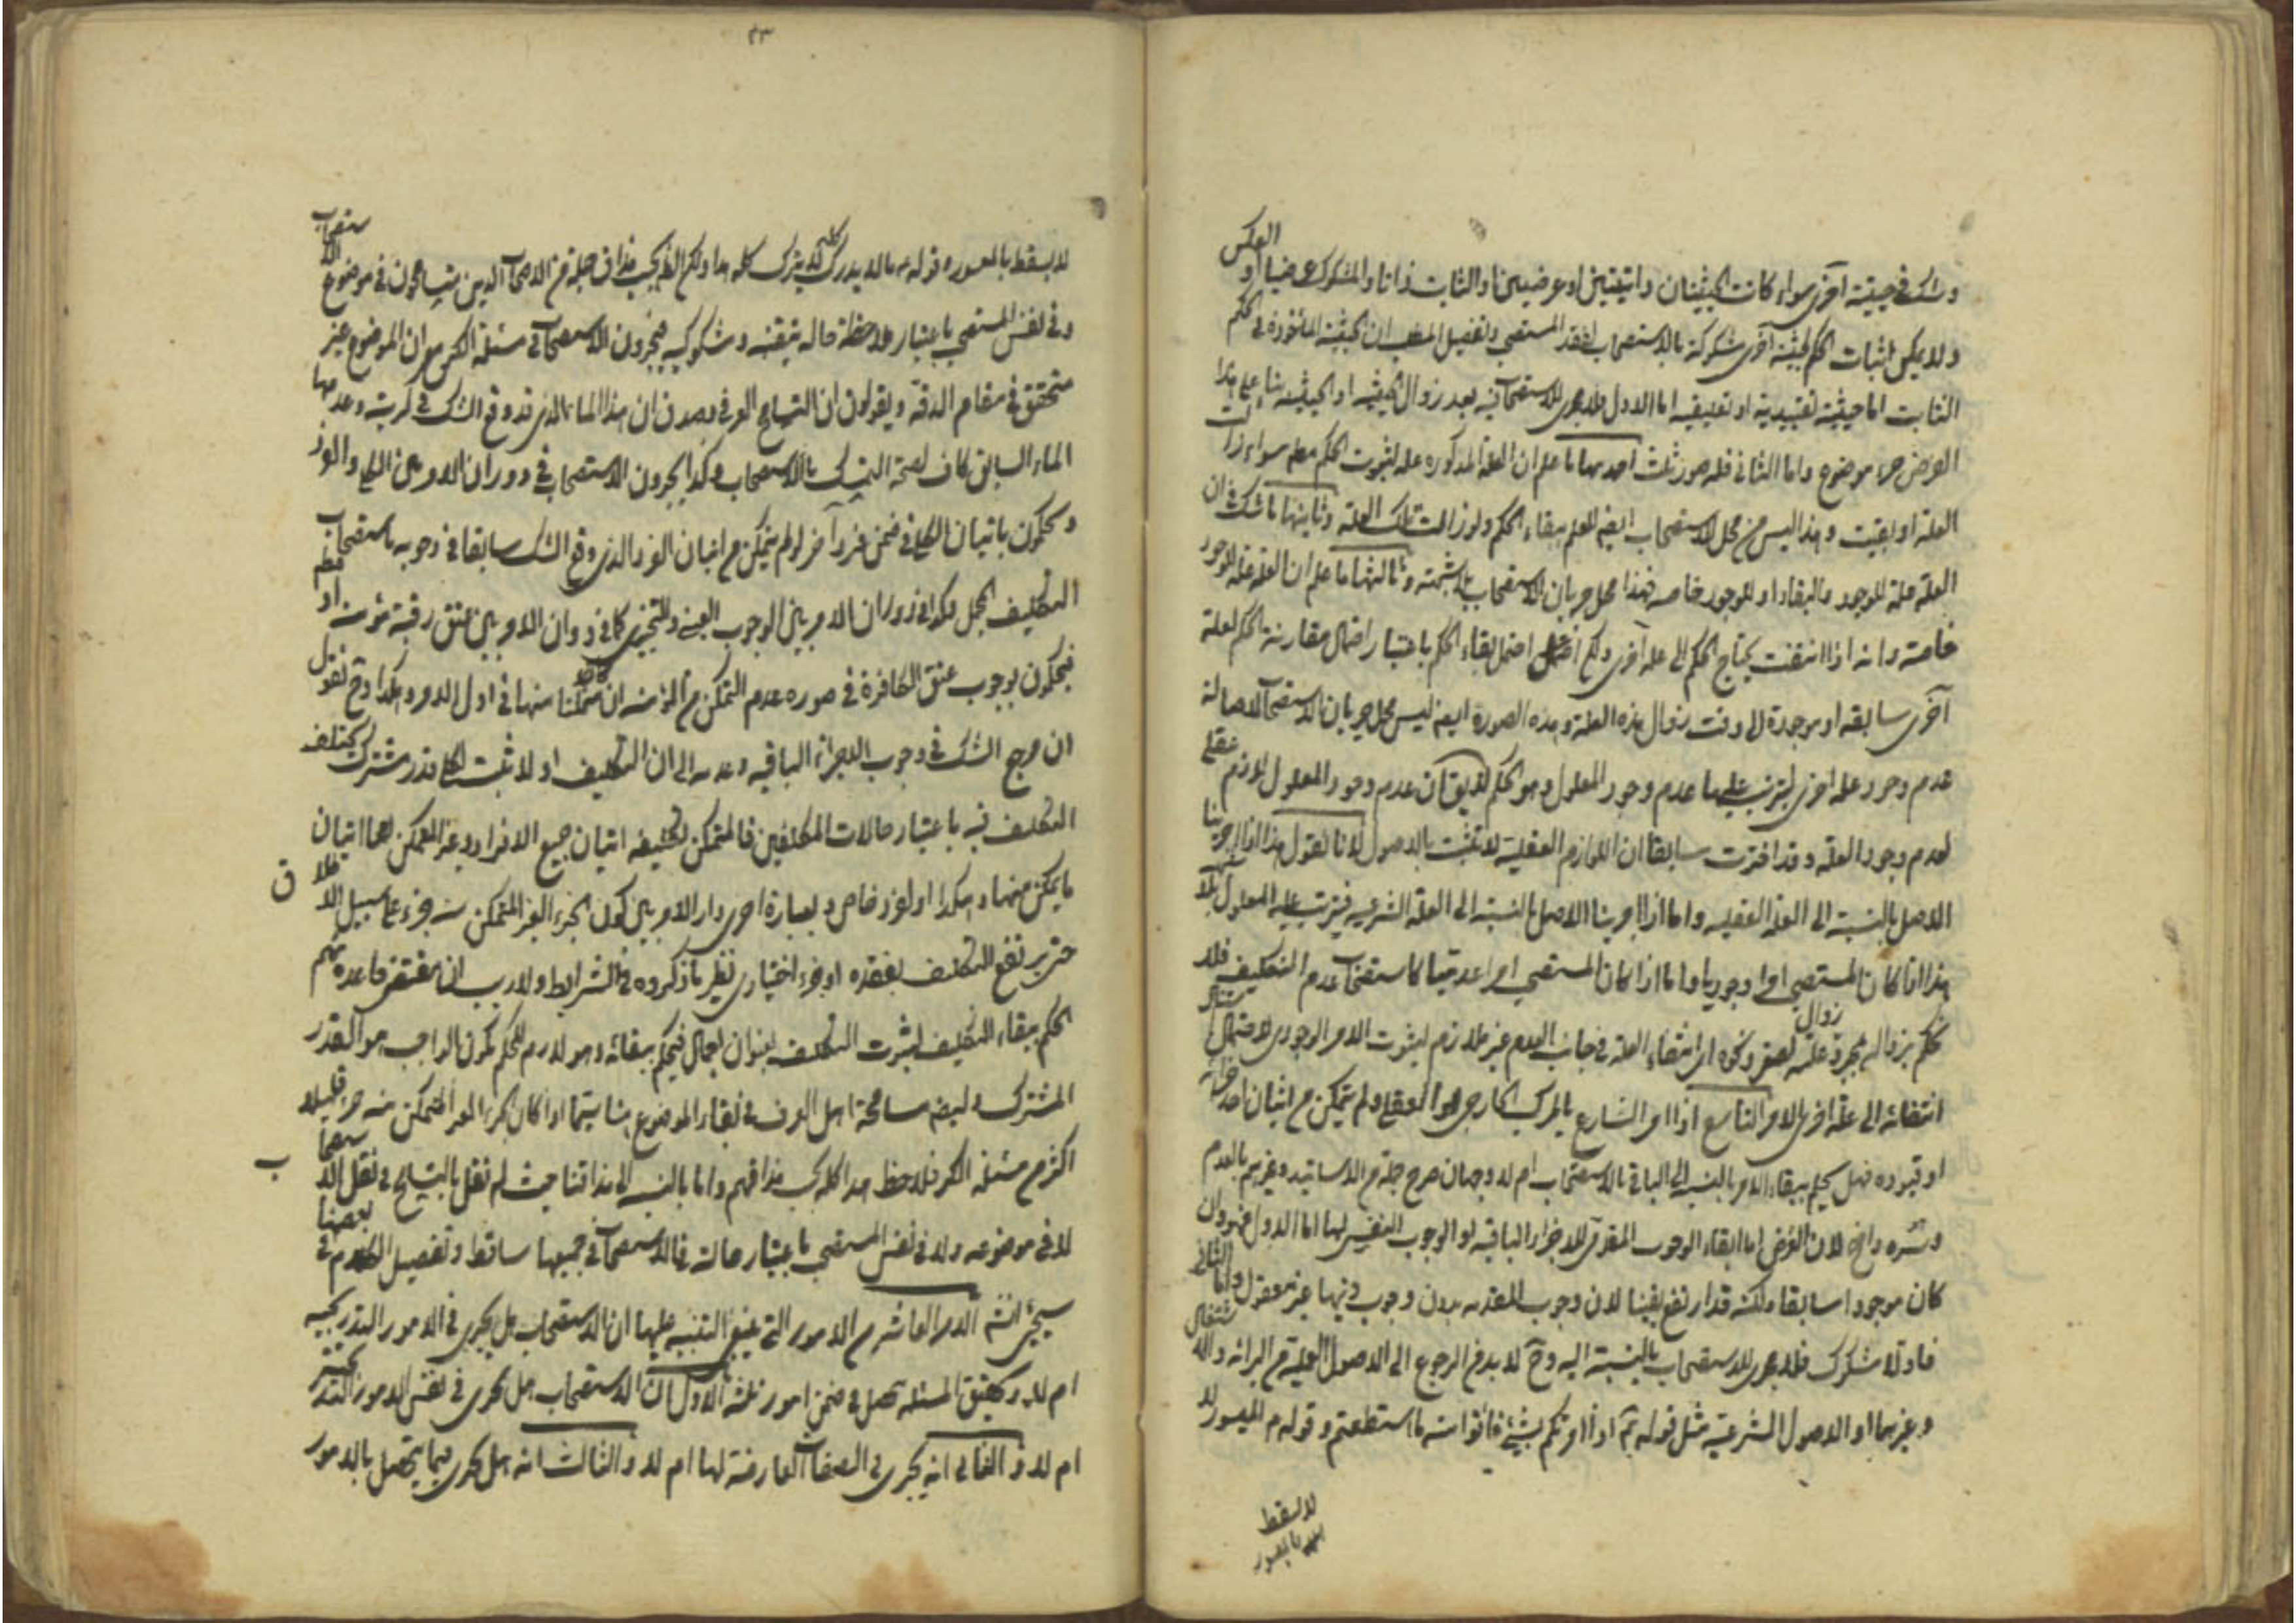 وشك في حيثية أخرى سواء كانت الحيثيتان ذاتيتين او عرضيتين او الثابت ذاتا والمشكوك عرضيا او العكس
ولا يمكن اثبات الحكم لحيثية أخرى مشكوكة بالاستصحاب لفقد المستصحب وتفصيل المطلب ان الحيثية المأخوذة في الحكم
الثابت اما حيثية تقييدية او تعليقية اما الاول فلا مجرى للاستصحاب فيه بعد زوال الحيثية اذ الحيثية بناء على هذا
الفرض جزء موضوع واما الثاني فله صور ثلث احدها ما علم ان العلة المذكورة علة لثبوت الحكم مطلقا سواء زالت
العلة او بقيت وهذا ليس من محل الاستصحاب ايضا للعلم ببقاء الحكم ولو زالت تلك العلة وثانيها ما شك في ان
العلة علة للوجود والبقاء او للوجود خاصة فهذا محل جريان الاستصحاب بلا شبهة وثالثها ما علم ان العلة علة للوجود
خاصة وانه اذا انتفت يحتاج الحكم الى علة أخرى ولكن احتمل بقاء الحكم باعتبار احتمال مقارنة الحكم لعلة
أخرى سابقة او موجودة الى وقت زوال هذه العلة وهذه الصورة ايضا ليس محل جريان الاستصحاب لاصالة
عدم وجود علة اخرى يترتب عليها عدم وجود المعلول وهو الحكم لا يقال ان عدم وجود المعلول لازم عقلي
لعدم وجود العلة وقد اخترت سابقا ان اللوازم العقلية لا تثبت بالاصول لانا نقول هذا اذا اجرينا
الاصل بالنسبة الى العلة العقلية واما اذا اجرينا الاصل بالنسبة الى العلة الشرعية فيترتب عليه المعلول بلا شبهة
هذا اذا كان المستصحب امرا وجوديا واما اذا كان المستصحب امرا عدميا كاستصحاب عدم التكليف فلا
نحكم بزواله بمجرد زوال علته لصغر ونحوه اذ انتفاء العلة في جانب العدم غير ملازم لثبوت الامر الوجودي لاحتمال استناد
انتفائه الى علة اخرى الامر التاسع اذا امر الشارع بالمركب الخارجي او العقلي ولم يتمكن من اتيان احد اجزائه
او قيوده فهل يحكم ببقاء الامر بالنسبة الى الباقي بالاستصحاب ام لا وجهان صرح جملة من الاساتيد وغيرهم بالعدم
وسره واضح لان الغرض اما ابقاء الوجوب المقدمي للاجزاء الباقية او الوجوب النفسي لها اما الاول فهو وان
كان موجودا سابقا ولكنه قد ارتفع يقينا لان وجوب المقدمة بدون وجوب ذيها غير معقول واما الثاني
فحادثة مشكوك فلا مجرى للاستصحاب بالنسبة اليه وح لا بد من الرجوع الى الاصول العملية من البرائة والاشتغال
وغيرهما او الاصول الشرعية مثل قوله ع اذا امرتكم بشئ فاتوا منه ما استطعتم وقوله ع الميسور لا
لا يسقط
بالمعسور
٤٣
لا يسقط بالمعسور وقوله ع ما لا يدرك كله لا يترك كله هذا ولكن الظ بحسب مذاق جملة من الاصحاب الذين يتسامحون في موضوع الاستصحاب
وفي نفس المستصحب باعتبار ملاحظة حاله تيقنه ومشكوكيه فيجرون الاستصحاب في مسئلة الكر مع ان الموضوع غير
متحقق في مقام الدقة ويقولون ان التسامح العرفي وصدق ان هذا الماء الذي قد وقع الشك في كريته وعدمها
الماء السابق كاف لصحة التمسك بالاستصحاب وكذا يجرون الاستصحاب في دوران الامر بين الكلي والفرد
ويحكمون باتيان الكلي في ضمن فرد آخر لو لم يتمكن من اتيان الفرد الذي وقع الشك سابقا في وجوبه باستصحاب
التكليف المجمل هكذا في دوران الامر بين الوجوب العيني والتخييري كما في دوران الامر بين عتق رقبة مؤمنة او مطلقا
فيحكمون بوجوب عتق الكافرة في صورة عدم التمكن من المؤمنة ان كان متمكنا منها في اول الامر وهكذا وح نقول
ان مرجع الشك في وجوب الاجزاء الباقية وعدمه الى ان التكليف اولا ثبت لكل قدر مشترك يختلف
التكليف فيه باعتبار حالات المكلفين فالمتمكن تكليفه اتيان جميع الافراد وغير المتمكن لهما اتيان
ما يمكن منهما وهكذا او لفرد خاص وبعبارة اخرى دار الامر بين كون الجزء الغير المتمكن منه جزء على سبيل الاطلاق
حتى يرتفع التكليف بفقده او جزء اختياري نظير ما ذكروه في الشرايط ولا ريب ان مقتضى قاعدتهم
الحكم ببقاء التكليف لثبوت التكليف بعنوان اجمال فيحكم ببقائه وهو لازم للحكم بكون الواجب هو القدر
المشترك وليس مسامحة اهل العرف في بقاء الموضوع هنا سيما اذا كان الجزء الغير المتمكن منه جزء قليلا
اكثر من مسئلة الكر فلاحظ هذا كله بحسب مذاقهم واما بالنسبة الى مذاقنا حيث لم نقل بالتسامح في نقل الاستصحاب
لا في موضوعه ولا في نفس المستصحب باعتبار حالته فالاستصحاب في جميعها ساقط وتفصيل الكلام في بعضها
سيجئ انشاء الله الامر العاشر من الامور التي ينبغي التنبيه عليها ان الاستصحاب هل يجري في الامور التدريجية
ام لا وتحقيق المسئلة يحصل في ضمن امور ثلثة الاول ان الاستصحاب هل يجري في نفس الامور التدريجية
ام لا والثاني انه يجري في الصفات العارضة لها ام لا والثالث انه هل يجري فيما يتحصل بالامور